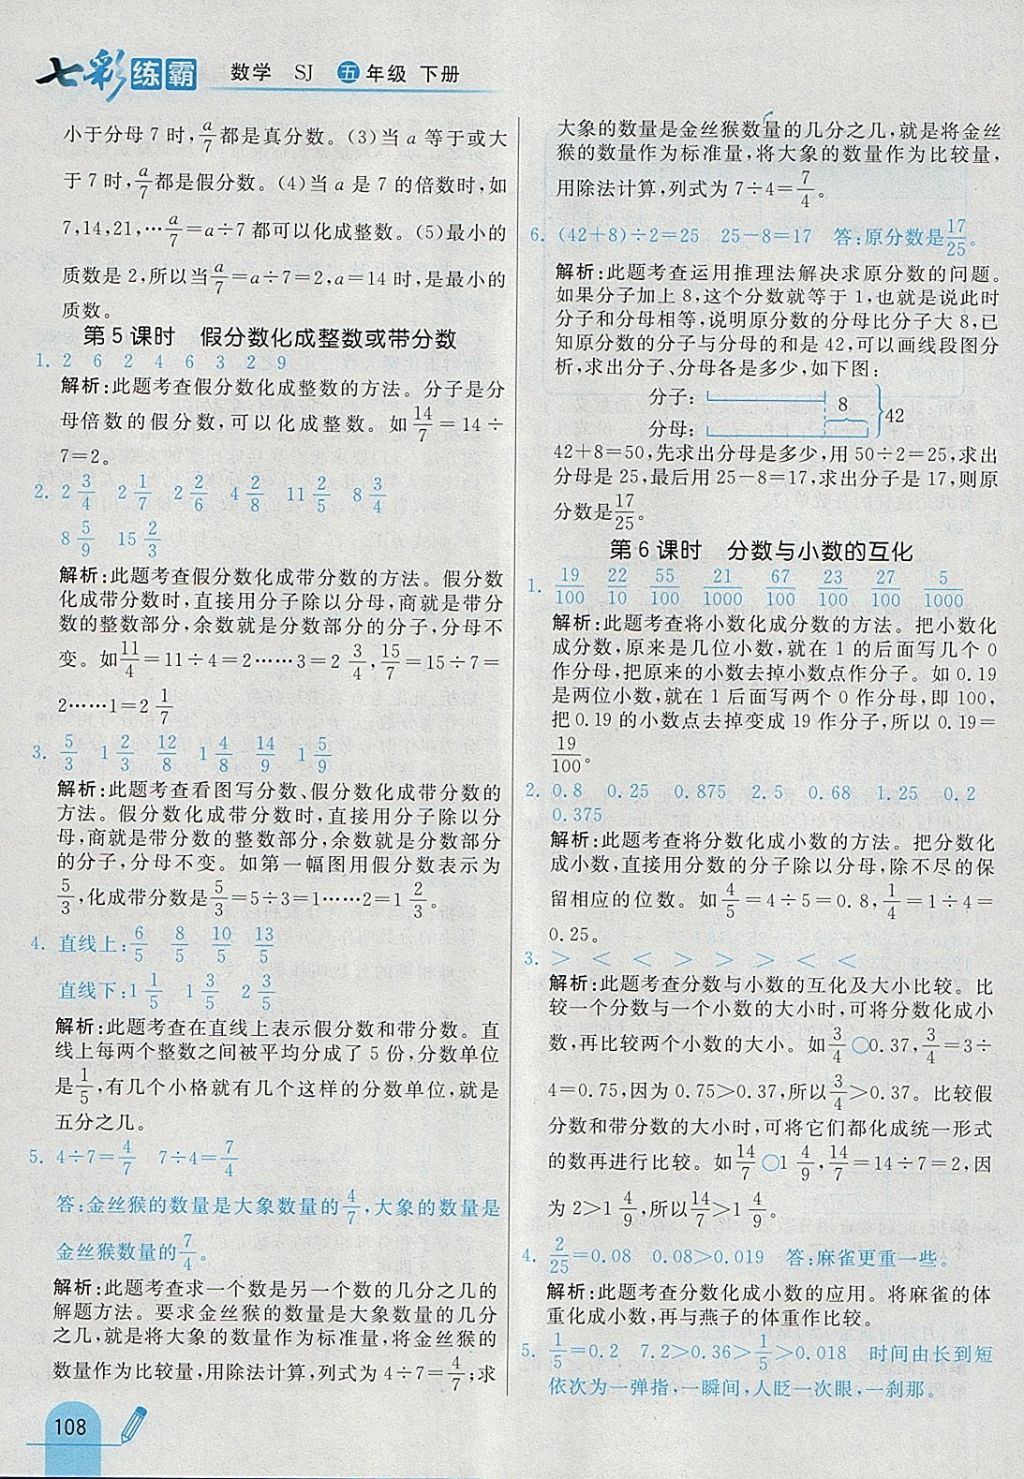 七彩练霸 数学 SJ 五年级 下册
小于分母7时,a/7都是真分数。(3)当a等于或大
于7时,a/7都是假分数。(4)当a是7的倍数时,如
7,14,21,…a/7=a÷7都可以化成整数。(5)最小的
质数是2,所以当a/7=a÷7=2,a=14时,是最小的
质数。
第5课时 假分数化成整数或带分数
1. 2 6 2 4 6 3 2 9
解析:此题考查假分数化成整数的方法。分子是分
母倍数的假分数,可以化成整数。如14/7=14÷
7=2。
2. 2 3/4 2 1/7 2 2/6 4 2/8 11 2/5 8 3/4
8 5/9 15 2/3
解析:此题考查假分数化成带分数的方法。假分数
化成带分数时,直接用分子除以分母,商就是带分
数的整数部分,余数就是分数部分的分子,分母不
变。如11/4=11÷4=2……3=2 3/4,15/7=15÷7=
2……1=2 1/7
3. 5/3 1 2/3 12/8 1 4/8 14/9 1 5/9
解析:此题考查看图写分数、假分数化成带分数的
方法。假分数化成带分数时,直接用分子除以分
母,商就是带分数的整数部分,余数就是分数部分
的分子,分母不变。如第一幅图用假分数表示为
5/3,化成带分数是5/3=5÷3=1……2=1 2/3。
4. 直线上:6/5 8/5 10/5 13/5
直线下:1 1/5 1 3/5 2 3/5
解析:此题考查在直线上表示假分数和带分数。直
线上每两个整数之间被平均分成了5份,分数单位
是1/5,有几个小格就有几个这样的分数单位,就是
五分之几。
5. 4÷7=4/7 7÷4=7/4
答:金丝猴的数量是大象数量的4/7,大象的数量是
金丝猴数量的7/4。
解析:此题考查求一个数是另一个数的几分之几的
解题方法。要求金丝猴的数量是大象数量的几分
之几,就是将大象的数量作为标准量,将金丝猴的
数量作为比较量,用除法计算,列式为4÷7=4/7;求
大象的数量是金丝猴数量的几分之几,就是将金丝
猴的数量作为标准量,将大象的数量作为比较量,
用除法计算,列式为7÷4=7/4。
6. (42+8)÷2=25 25-8=17 答:原分数是17/25。
解析:此题考查运用推理法解决求原分数的问题。
如果分子加上8,这个分数就等于1,也就是说此时
分子和分母相等,说明原分数的分母比分子大8,已
知原分数的分子与分母的和是42,可以画线段图分
析,求出分子、分母各是多少,如下图:
分子:
8
42
分母:
42+8=50,先求出分母是多少,用50÷2=25,求出
分母是25,最后用25-8=17,求出分子是17,则原
分数是17/25。
第6课时 分数与小数的互化
1. 19/100 22/10 55/100 21/1000 67/100 23/100 27/100 5/1000
解析:此题考查将小数化成分数的方法。把小数化
成分数,原来是几位小数,就在1的后面写几个0
作分母,把原来的小数去掉小数点作分子。如0.19
是两位小数,就在1后面写两个0作分母,即100,
把0.19的小数点去掉变成19作分子,所以0.19=
19/100。
2. 0.8 0.25 0.875 2.5 0.68 1.25 0.2
0.375
解析:此题考查将分数化成小数的方法。把分数化
成小数,直接用分数的分子除以分母,除不尽的保
留相应的位数。如4/5=4÷5=0.8,1/4=1÷4=
0.25。
3. > < < > > > < <
解析:此题考查分数与小数的互化及大小比较。比
较一个分数与一个小数的大小时,可将分数化成小
数,再比较两个小数的大小。如3/4○0.37,3/4=3÷
4=0.75,因为0.75>0.37,所以3/4>0.37。比较假
分数和带分数的大小时,可将它们都化成统一形式
的数再进行比较。如14/7○1 4/9,14/7=14÷7=2,因
为2>1 4/9,所以14/7>1 4/9。
4. 2/25=0.08 0.08>0.019 答:麻雀更重一些。
解析:此题考查分数化成小数的应用。将麻雀的体
重化成小数,再与燕子的体重作比较。
5. 1/5=0.2 7.2>0.36>1/5>0.018 时间由长到短
依次为一弹指,一瞬间,人眨一次眼,一刹那。
108